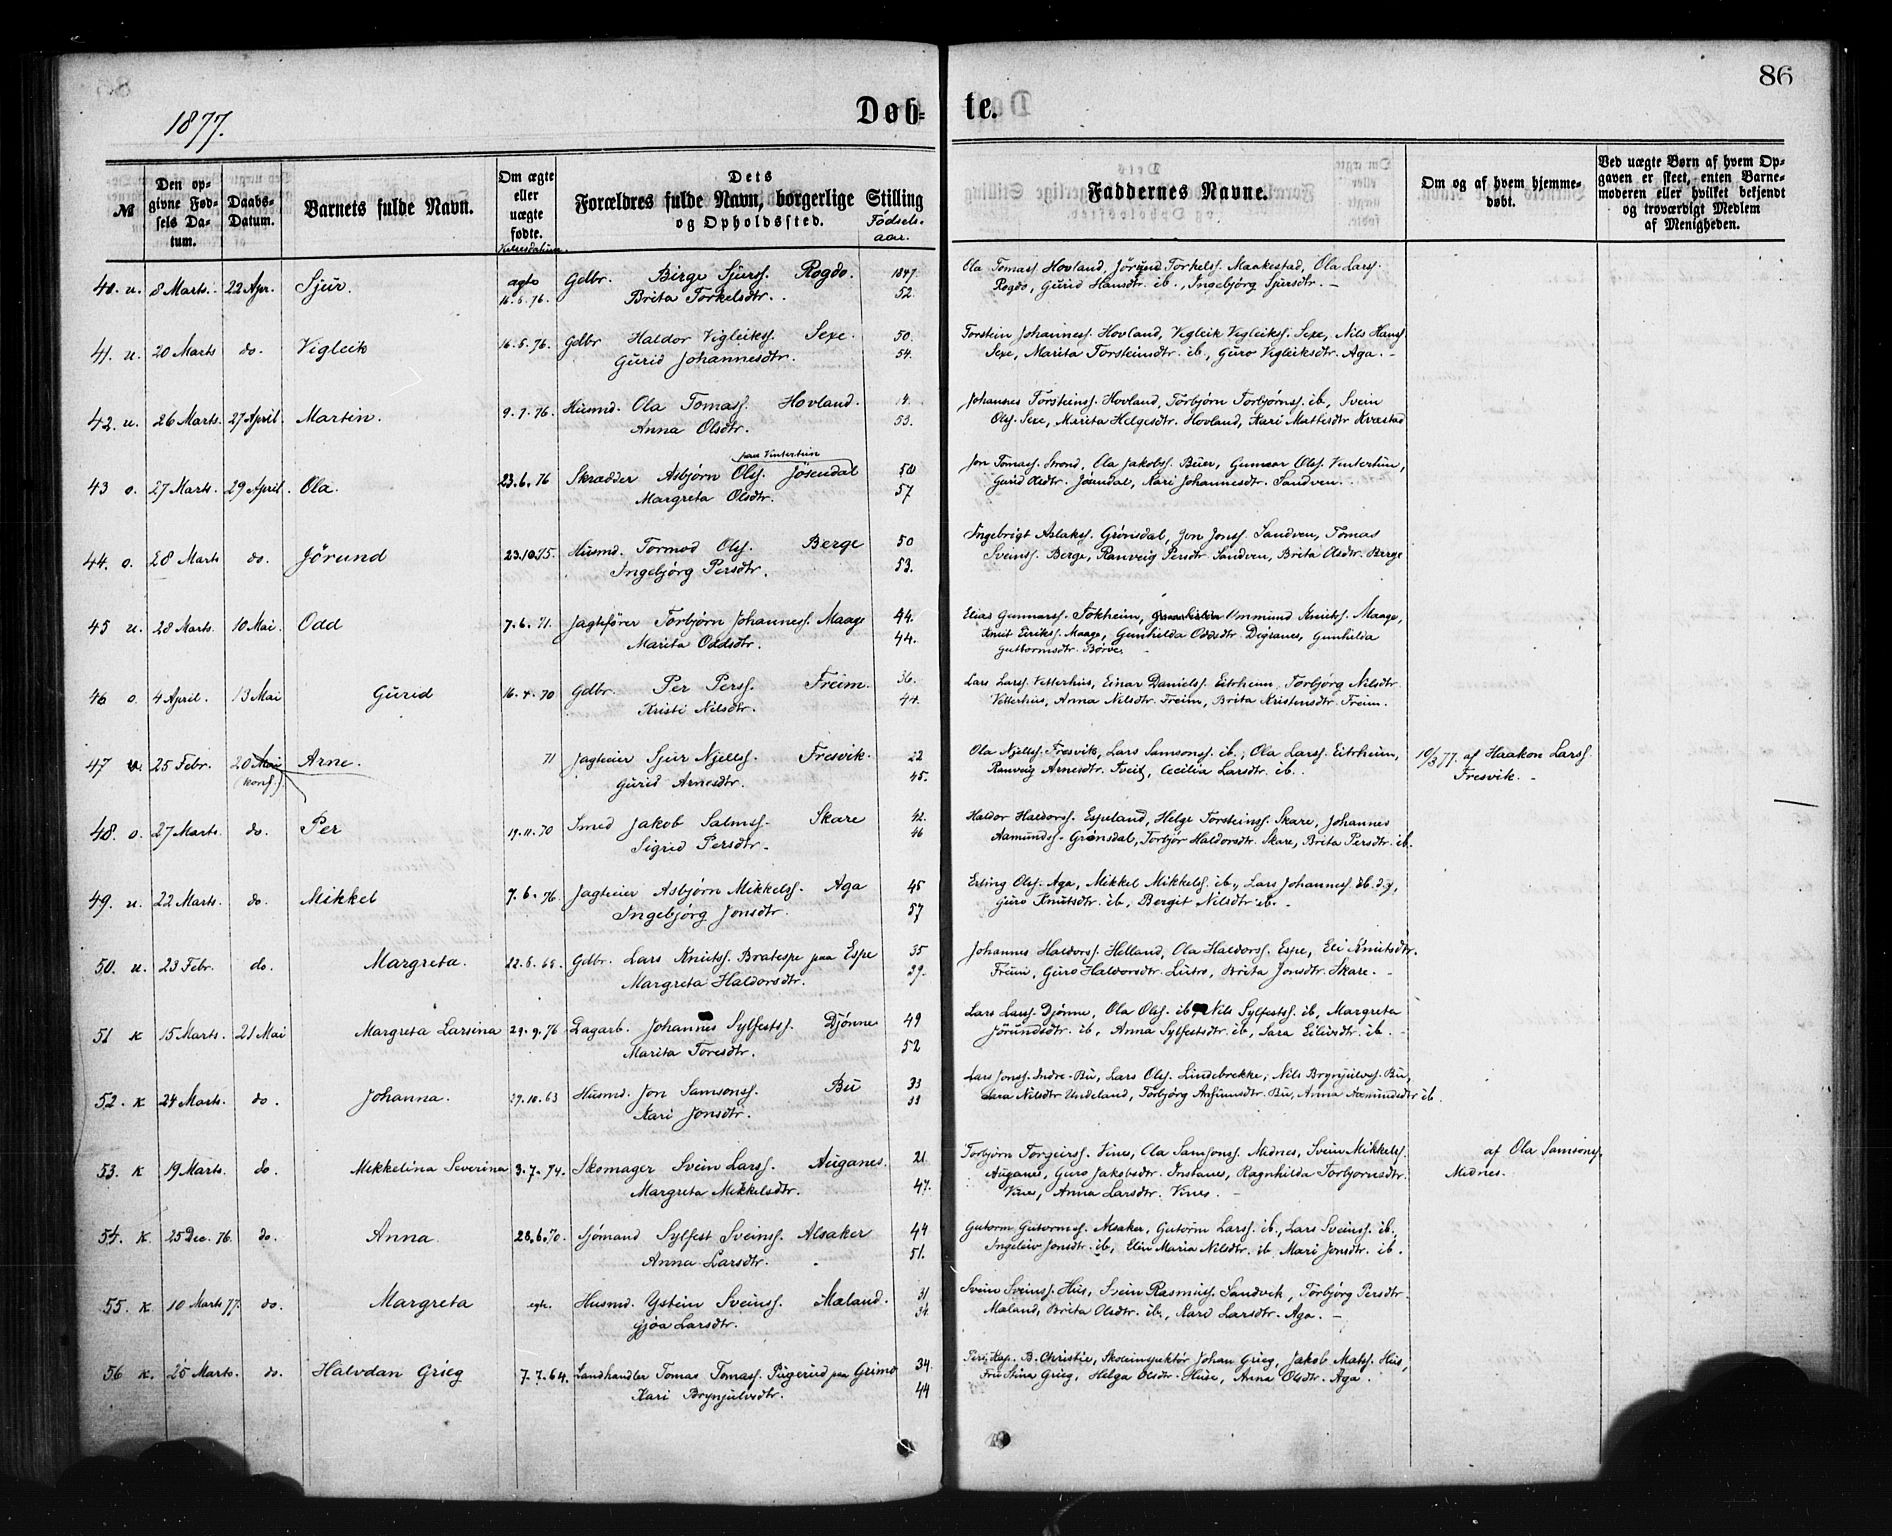 86
1877.
Døb- te.
№ | Den opgivne Fødsels Datum. | Daabs-Datum. | Barnets fulde Navn. | Om ægte eller uægte fødte. Vielsesdatum. | Dets Forældres fulde Navn, borgerlige Stilling og Opholdssted. Fødselsaar. | Faddernes Navne. | Om og af hvem hjemmedøbt. | Ved uægte Børn af hvem Opgaven er skeet, enten Barnemoderen eller hvilket bekjendt og troværdigt Medlem af Menigheden.
40. u. 8 Marts. 22 Apr. Sjur. ægte Gdbr. Birge Sjurss. Rogdo. 1847. Ola Tomass. Hovland, Jörund Torkelss. Maakestad, Ola Larss.
16.6.76. Brita Torkelsdtr. 52. Rogdo, Gurid Hansdtr. ib., Ingebjörg Sjursdtr. –
41. u. 20 Marts do. Vigleik 16.6.76. Gdbr Haldor Vigleikss. Sexe. 50. Torstein Johanness. Hovland, Vigleik Vigleikss. Sexe, Nils Hanss.
Gurid Johannesdtr. 54. Sexe, Marita Torsteinsdtr. ib., Guro Vigleiksdtr. Aga. –
42. u. 26 Marts. 27 April. Martin. 9.7.76. Husmd. Ola Tomass. Hovland. Johannes Torsteinss. Hovland, Torbjörn Torbjörnss. ib., Svein
Anna Olsdtr. 53. Olss. Sexe, Marita Helgesdtr. Hovland, Kari Mattesdtr Kvæstad
43 o. 27 Marts. 29 April. Ola. 23.6.76 Skrædder Asbjørn Olss. Jösendal paa Vintertun 50 Jon Tomass. Strond, Ola Jakobss. Buer, Gunnar Olss. Vintertun,
Margreta Olsdtr. 57 Gurid Olsdtr. Jösendal, Kari Johannesdtr. Sandven.
44. o. 28 Marts do. Jörund 23.10.75. Husmd. Tormod Olss. Berge 50 Ingebrigt Aslakss. Grönsdal, Jon Jonss. Sandven, Tomas
Ingebjörg Persdtr. 53. Sveinss. Berge, Ranveig Persdtr. Sandven, Brita Olsdtr. Berge
45 u. 28 Marts. 10 Mai. Odd 7.6.71. Jagtfører Torbjörn Johanness. Maage 44. Elias Gunnarss. Tokheim, Ommund Knutss. Maage,
Marita Oddsdtr. 44. Knut Eirikss. Maage, Gunhilda Oddsdtr. Digranes, Gunhilda
Guttormsdtr. Börve.
46 o. 4 April. 13 Mai Gurid 16.4.70 Gdbr. Per Perss. Freim. 36. Lars Larss. Vetterhus, Einar Danielss. Eitrheim, Torbjörg Nilsdtr
Kristi Nilsdtr. 44. Vetterhus, Anna Nilsdtr. Freim, Brita Kristensdtr. Freim.
47 25 Febr. 20 Mai (konf.) Arne. 71 Jagteier Sjur Njelss. Fresvik. 22 Ola Njelss. Fresvik, Lars Samsonss. ib., Ola Larss. Eitrheim, 10/3 77. af Haakon Larss.
Gurid Arnesdtr. 45. Ranveig Arnesdtr. Tveit, Cecilia Larsdtr. ib. Fresvik. –
48. o. 27 Marts. do. Per 19.11.70 Smed Jakob Salmss. Skare 42. Haldor Haldorss. Espeland, Helge Torsteinss. Skare, Johannes
Sigrid Persdtr. 46 Aamundss. Grönsdal, Torbjör Haldorsdtr. Skare, Brita Persdtr. ib.
49. u. 22 Marts. do. Mikkel 7.6.76. Jagteier Asbjörn Mikkelss. Aga 45 Erling Olss. Aga, Mikkel Mikkelss. ib., Lars Johanness. ib.
Ingebjörg Jonsdtr. 57 Guro Knutsdtr. ib, Bergit Nilsdtr. ib. –
50. u. 23 Febr. do. Margreta. 22.6.65. Gdbr. Lars Knutss. Bratespe paa Espe 35 Johannes Haldorss. Helland, Ola Haldorss. Espe, Eli Knutsdtr.
Margreta Haldorsdtr. 29. Freim, Guro Haldorsdtr. Lutro, Brita Jonsdtr. Skare. –
51 K 15 Marts. 21 Mai Margreta Larsina 29.9.76 Dagarb. Johannes Sylfestss. Djönne 49 Lars Larss. Djönne, Ola Olss. ib, Nils Sylfestss. ib, Margreta
Marita Toresdtr. 52 Jörundsdtr. ib, Anna Sylfestsdtr. ib, Sara Eilivsdtr. ib. –
52. K 24 Marts. do. Johanna. 27.10.63 Husmd. Jon Samsonss. Bu 33 Lars Jonss. Indre-Bu, Lars Olss. Lindebrekke, Nils Brynjulvss. Bu,
Kari Jonsdtr. 33 Sara Nilsdtr Undeland, Torbjörg Arfinnsdtr. Bu, Anna Aamundsdtr ib.
53. K 19 Marts. do. Mikkelina Severina 3.7.74. Skomager Svein Larss. Auganes. 21 Torbjörn Torgeirss. Vines, Ola Samsonss. Midnes, Svein Mikkelss. af Ola Samsons.
Margreta Mikkelsdtr. 47. Auganes, Guro Jakobsdtr. Instanes, Ragnhilda Torbjörnsdtr. Midnes.
Vines, Anna Larsdtr. Vines. –
54. K. 25 Dec. 76. do. Anna. 28.6.70. Sjömand Sylfest Sveinss. Alsaker 44 Gutorm Gutormss. Alsaker, Gutorm Larss. ib., Lars Sveinss. ib.,
Anna Larsdtr. 51. Ingeleiv Jonsdtr. ib, Elin Maria Nilsdtr. ib. Mari Jonsdtr. ib.
55. K. 10 Marts 77. do. Margreta egte. Husmd. Ystein Sveinss. Mæland. 31 Svein Sveinss. Hus, Svein Rasmuss. Sandvik, Torbjörg Persdtr
Gjöa Larsdtr. 34 Mæland, Brita Olsdtr. ib., Kari Larsdtr. Aga. –
56 K. 25 Marts. do. Halvdan Grieg 7.7.64. Landhandler Tomas Tomass. Pügerud paa Grimo 34. Pers. Kap. B. Christie, Skoleinspektör Johan Grieg, Jakob Matss. Hus,
Kari Brynjulvsdtr. 44 Fru Stina Grieg, Helga Olsdtr. Huse, Anna Olsdtr. Aga.